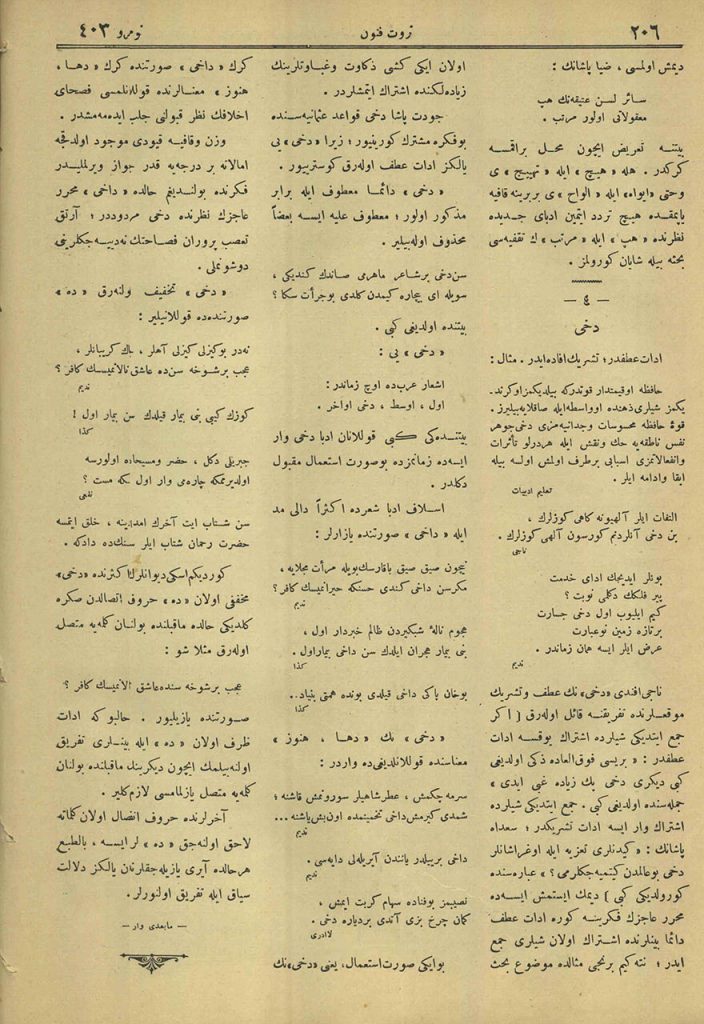 ٢٠٦
ثروت فنون
نومرو ٤٠٣
دیمش اولمسی ، ضیا پاشانك :
سائر لسن عتیقه‌نك هپ
معقولاتی اولور مرتب .
بیتنه تعریض ایچون محل براقمسه
كركدر . هله « هیچ » ایله « تهییج » ی
وحتی «ایواه» ایله « الواح » ی بربرینه قافیه
یاپمقده هیچ تردد ایتمین ادبای جدیده
نظرنده « هپ » ایله « مرتب » ك تقفیه‌سی
بحثه بیله شایان كورولمز .
— ٤ —
دخی
ادات عطفدر ؛ تشریك افاده ایدر . مثال :
حافظه اوقیمتدار قوتدركه بیلدیكمز اوكرند-
یكمز شیلری ذهنده اوواسطه ایله صاقلایه‌بیلیرز .
قوۀ حافظه محسوسات وجدانیه‌مزی دخی جوهر
نفس ناطقه‌یه حك ونقش ایله هردرلو تأثرات
وانفعالاتمزی اسبابی برطرف اولمش اولسه بیله
ابقا وادامه ایلر .
تعلیم ادبیات
التفات ایلر آلهیونه كاهی كوزلرك ،
بن دخی آنلردنم كورسون آلهی كوزلرك .
ناجی
بونلر ایدیجك ادای خدمت
پیر فلكك دكلمی نوبت ؟
كیم ایلیوب اول دخی جسارت
برتازه زمین نوعبارت
عرض ایلر ایسه همان زماندر .
ندیم
ناجی افندی «دخی» نك عطف وتشریك
موقعلرنده تفریقنه قائل اوله‌رق ( اكر
جمع ایتدیكی شیلرده اشتراك یوقسه ادات
عطفدر : « بریسی فوق‌العاده ذكی اولدیغی
كبی دیكری دخی پك زیاده غبی ایدی »
جمله‌سنده اولدیغی كبی . جمع ایتدیكی شیلرده
اشتراك وار ایسه ادات تشریكدر ؛ سعدالله
پاشانك : « كیدنلری تعزیه ایله اوغراشانلر
دخی بوعالمدن كیتمیه‌جكلرمی ؟ » عباره‌سنده
كورولدیكی كبی ) دیمك ایستمش ایسه‌ده
محرر عاجزك فكرینه كوره ادات عطف
دائما بینلرنده اشتراك اولان شیلری جمع
ایدر ؛ نته‌كیم برنجی مثالده موضوع بحث
اولان ایكی كشی ذكاوت وغباوتلرینك
زیاده‌لكنده اشتراك ایتمشلردر .
جودت پاشا دخی قواعد عثمانیه‌سنده
بوفكره مشترك كورینیور ؛ زیرا « دخی » یی
یالكز ادات عطف اوله‌رق كوستریور .
« دخی » دائما معطوف ایله برابر
مذكور اولور ؛ معطوف علیه ایسه بعضاً
محذوف اوله‌بیلیر .
سن دخی برشاعر ماهرمی صاندك كندیكی ،
سویله ای بیچاره كیمدن كلدی بوجرأت سكا ؟
بیتنده اولدیغی كبی .
« دخی » یی :
اشعار عرب‌ده اوچ زماندر :
اول ، اوسط ، دخی اواخر .
بیتنده‌كی كبی قوللانان ادبا دخی وار
ایسه‌ده زمانمزده بوصورت استعمال مقبول
دكلدر .
اسلاف ادبا شعرده اكثراً دالی مد
ایله « داخی » صورتنده یازارلر :
نیچون صیق صیق باقارسك بویله مرأت مجلایه ،
مكرسن داخی كندی حسنكه حیرانمیسك كافر ؟
ندیم
هجوم نالۀ شبكیردن ظالم خبردار اول ،
بنی بیمار هجران ایلدك سن داخی بیمار اول .
كذا
بوخان پاكی داخی قیلدی بونده همتی بنیاد...
كذا
« دخی » نك « دها ، هنوز »
معناسنده قوللانلدیغی‌ده واردر :
سرمه چكمش ، عطرشاهیلر سورونمش قاشنه ؛
شمدی كیرمش داخی تخمینمده اون‌بش یاشنه ...
ندیم
داخی بریبلدر یانندن آیریله‌لی دایه‌سی .
ندیم
نصیبمز بوفناده سهام كربت ایمش ،
كمان چرخ بزی آندی بردیاره دخی .
لاادری
بوایكی صورت استعمال، یعنی «دخی» نك
كرك « داخی » صورتنده كرك « دها ،
هنوز » معنالرنده قوللانلمسی فصحای
اخلافك نظر قبولنی جلب ایده‌مه‌مشدر .
وزن وقافیه قیودی موجود اولدقجه
امالانه بر درجه‌یه قدر جواز ویرلملیدر
فكرنده بولندیغم حالده «داخی» محرر
عاجزك نظرنده دخی مردوددر ؛ آرتق
تعصب پروران فصاحتك نه‌دییه‌جكلرینی
دوشونملی .
« دخی » تخفیف اولنه‌رق « ده »
صورتنده‌ده قوللانیلیر :
نه‌در بوكیزلی كیزلی آهلر ، چاك كریبانلر ،
عجب برشوخه سن‌ده عاشق نالانمیسك كافر ؟
ندیم
كوزك كیبی بنی بیمار قیلدك سن بیمار اول !
كذا
جبریلی دكل ، خضر ومسیحاده اولورسه
اولدیرمكه چاره‌می وار اول نكه مست ؟
نفعی
سن شتاب ایت آخرك امدادینه ، خلق ایتمسه
حضرت رحمان شتاب ایلر سنك‌ده دادكه .
كوردیكم اسكی دیوانلرك اكثرنده «دخی»
مخففی اولان « ده » حروف اتصالدن صكره
كلدیكی حالده ماقبلنده بولنان كلمه‌یه متصل
اوله‌رق مثلا شو :
عجب برشوخه سنده عاشق نالانمیسك كافر ؟
صورتنده یازیلیور . حالبوكه ادات
ظرف اولان « ده » ایله بینلری تفریق
اولنه‌بیلمك ایچون دیكرینك ماقبلنده بولنان
كلمه‌یه متصل یازلمامسی لازم كلیر .
آخرلرنده حروف اتصال اولان كلماته
لاحق اولنه‌جق « ده » لر ایسه ، بالطبع
هرحالده آیری یازیله‌جقلرندن یالكز دلالت
سیاق ایله تفریق اولنورلر .
— مابعدی وار —